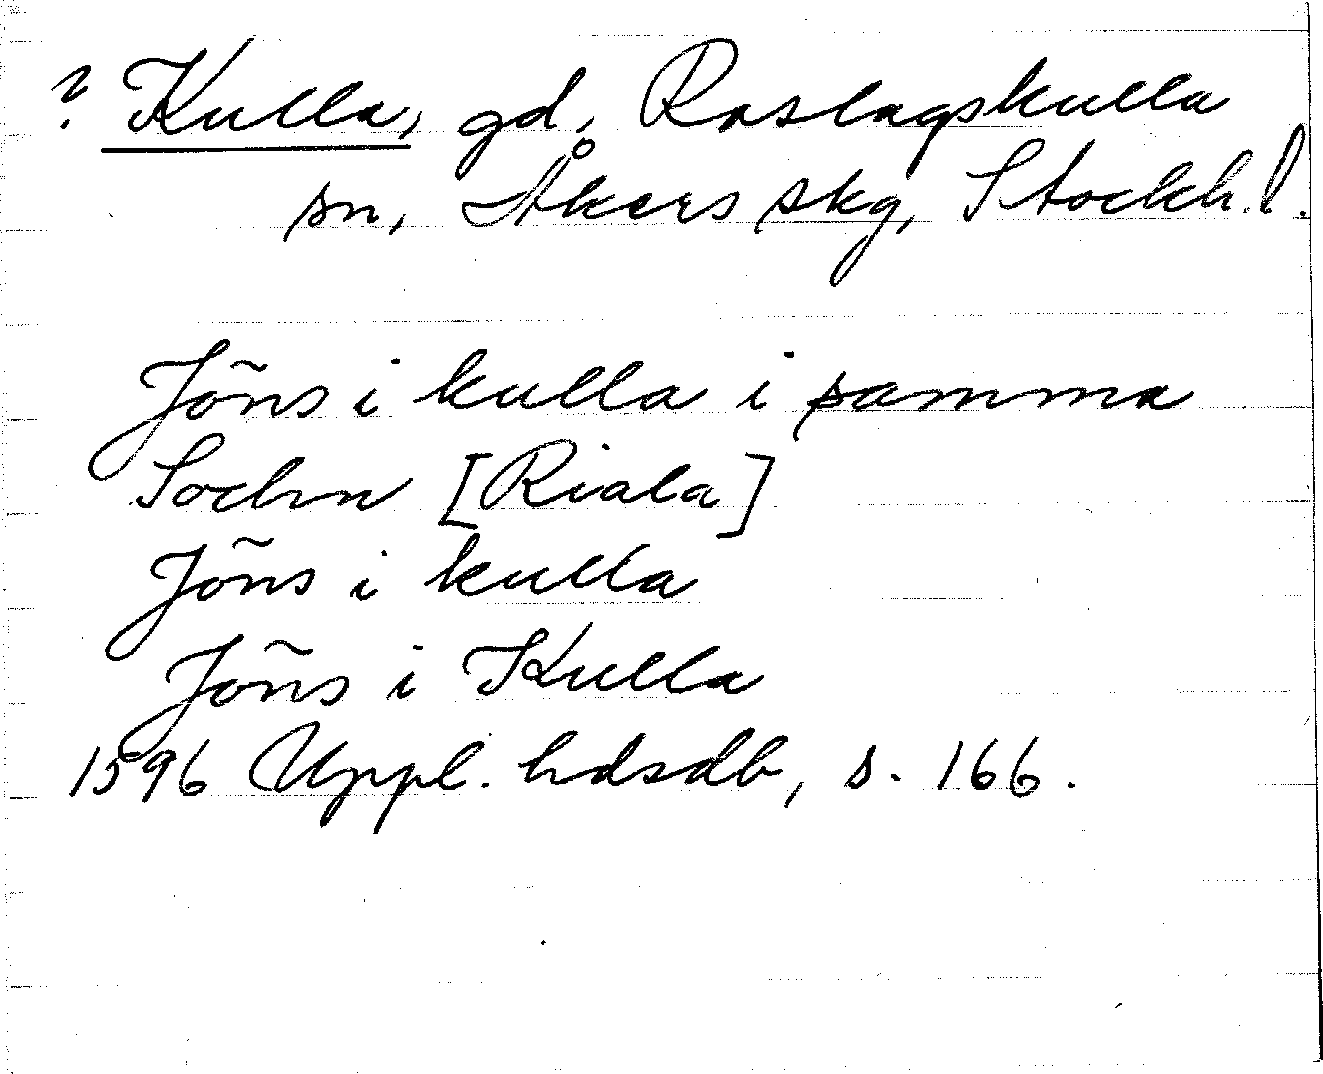 ? Kulla, gd, Roslagskulla
sn, Åkers skg, Stockh. l.
Jõns i kulla i samma
Sochn [Riala]
Jõns i kulla
Jõns i Kulla
1596 Uppl. hdsdb, s. 166.